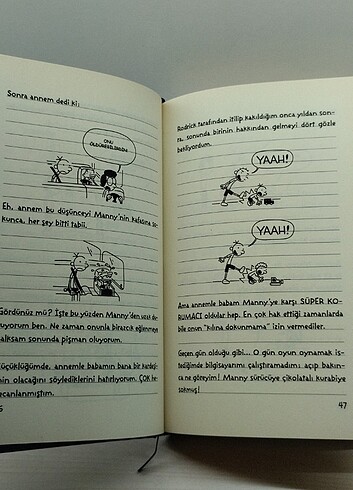 Sonra annem dedi ki:
ONU
ÖLDÜREBİLİRDİN!
Eh, annem bu düşünceyi Manny'nin kafasına so
kunca, her şey bitti tabii.
Gördünüz mü? İşte bu yüzden Manny'den uzak du
ruyorum ben. Ne zaman onunla birazcık eğlenmeye
kalksam sonunda pişman oluyorum.
Küçüklüğümde, annemle babamın bana bir kardeşi
min olacağını söylediklerini hatırlıyorum. ÇOK he
yecanlanmıştım.
6
Rodrick tarafından itilip kakıldığım onca yıldan son-
ra, sonunda birinin hakkından gelmeyi dört gözle
bekliyordum.
YAAH!
YAAH!
Ama annemle babam Manny'ye karşı SÜPER KO-
RUMACI oldular hep. En çok hak ettiği zamanlarda
bile onun "kılına dokunmama" izin vermediler.
Geçen gün olduğu gibi... O gün oyun oynamak is-
tediğimde bilgisayarımı çalıştıramadım; açıp bakın-
ca ne göreyim! Manny sürücüye çikolatalı kurabiye
sokmuş!
47